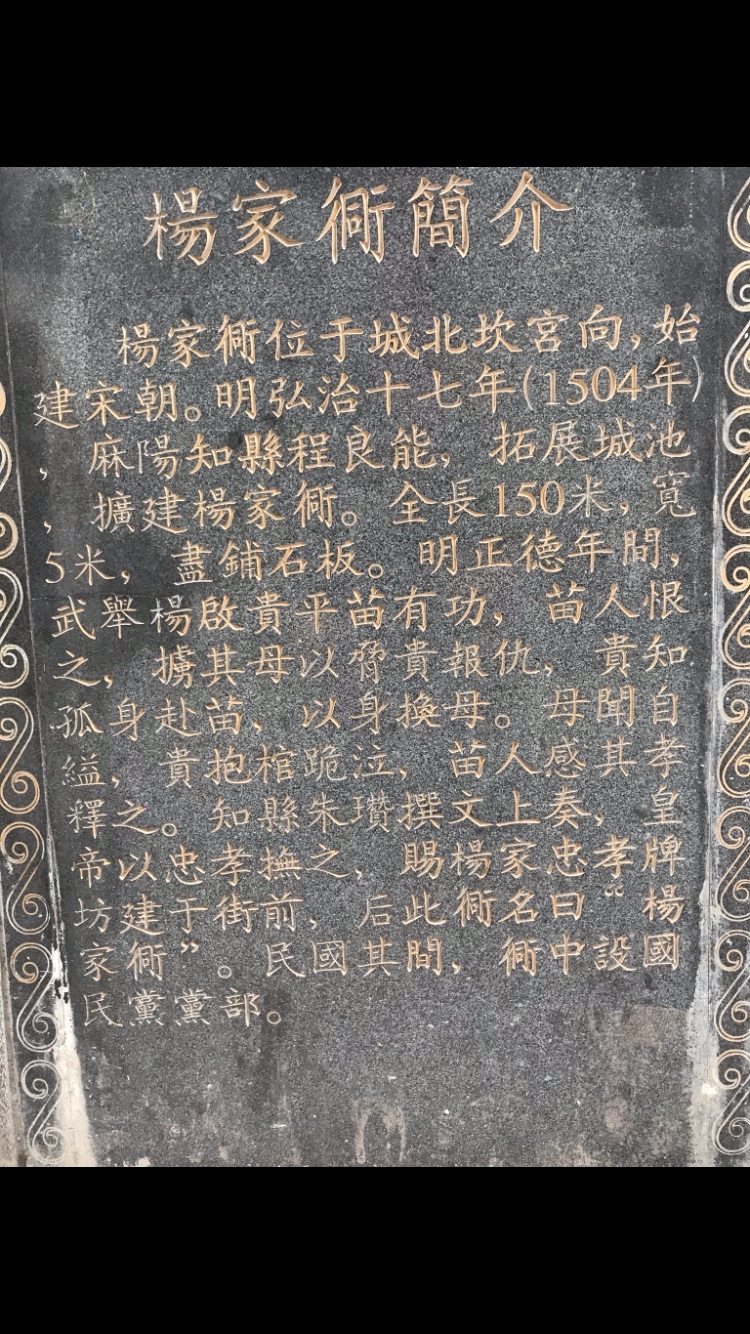 楊家衕簡介
楊家衕位于城北坎宮向，始
建宋朝。明弘治十七年（1504年）
，麻陽知縣程良能，拓展城池
，擴建楊家衕。全長150米，寬
5米，盡鋪石板。明正德年間，
武舉楊啟貴平苗有功，苗人恨
之，擄其母以脅貴報仇，貴知
孤身赴苗，以身換母。母聞自
縊，貴抱棺跪泣，苗人感其孝
釋之。知縣朱瓚撰文上奏，皇
帝以忠孝撫之，賜楊家忠孝牌
坊建于街前，后此衕名曰“楊
家衕”。民國其間，衕中設國
民黨黨部。